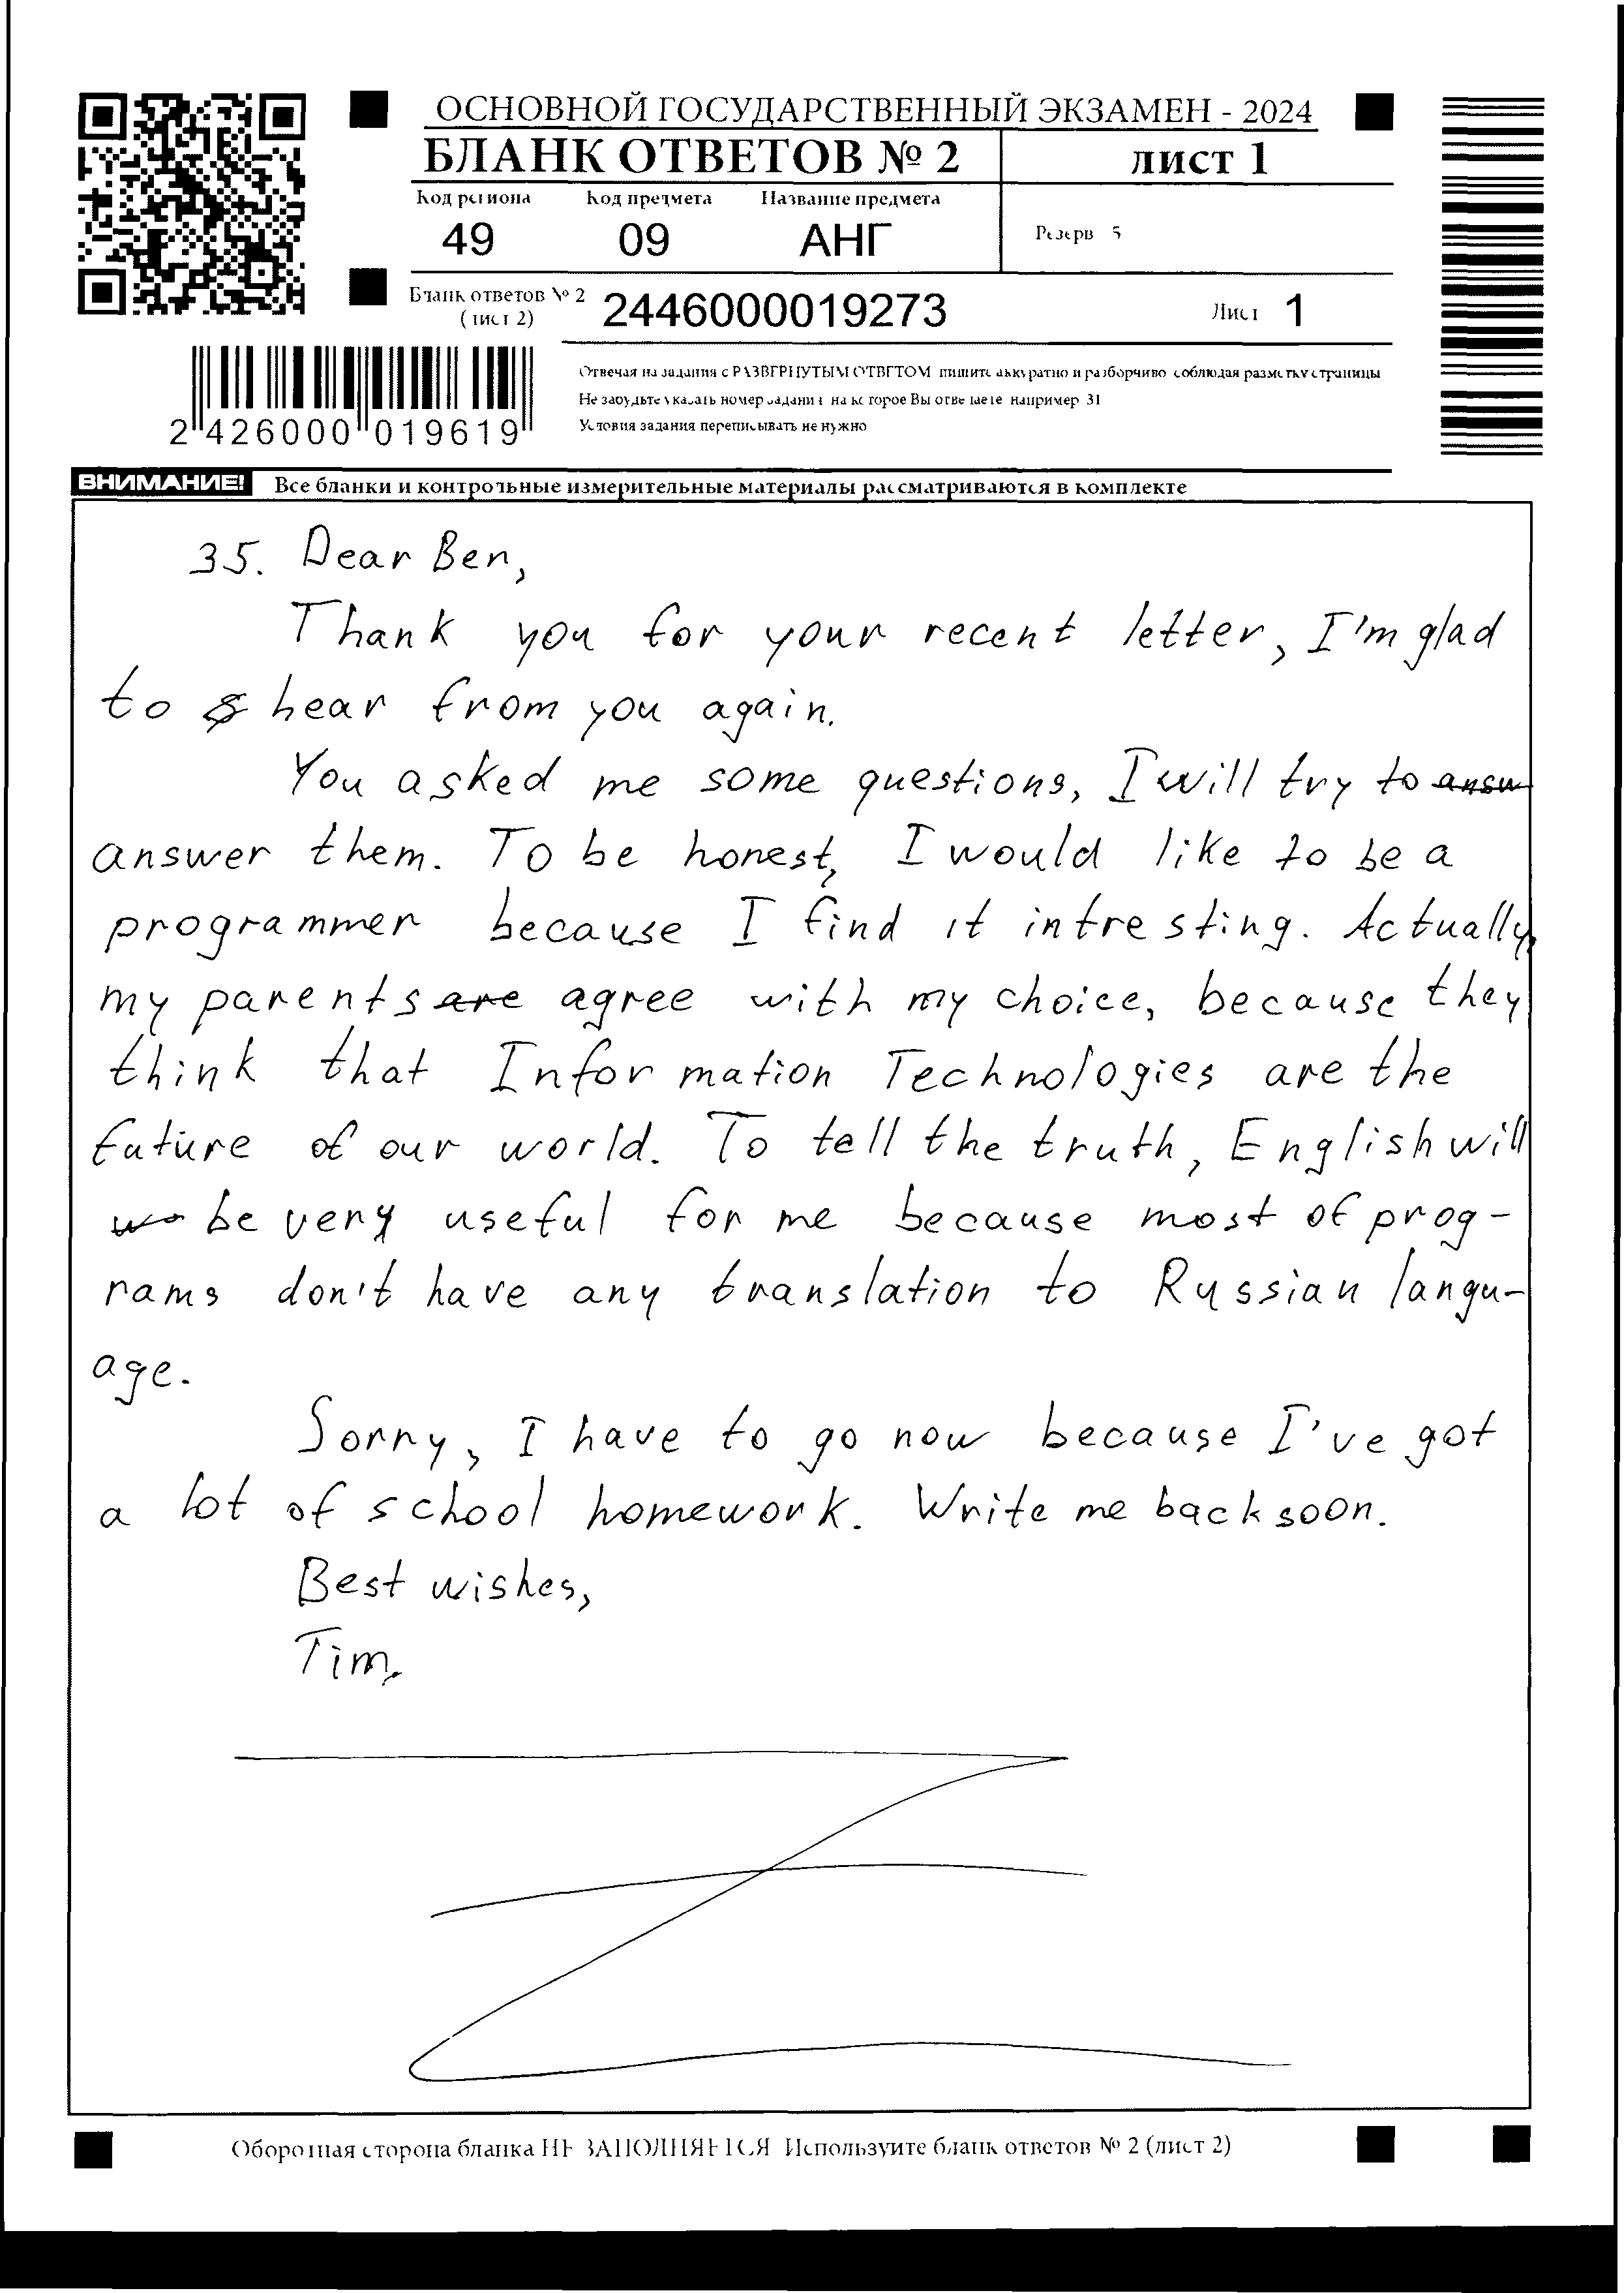 ОСНОВНОЙ ГОСУДАРСТВЕННЫЙ ЭКЗАМЕН - 2024
БЛАНК ОТВЕТОВ № 2
лист 1
Код региона Код предмета Название предмета
49 09 АНГ
Резерв 5
Бланк ответов № 2
(лист 2)
2446000019273
Лист 1
2 426000 019619
Отвечая на задания с РАЗВЕРНУТЫМ ОТВЕТОМ пишите аккуратно и разборчиво соблюдая разметку страницы
Не забудьте указать номер задания на которое Вы отвечаете например 31
Условия задания переписывать не нужно
ВНИМАНИЕ! Все бланки и контрольные измерительные материалы рассматриваются в комплекте
35. Dear Ben,
Thank you for your recent letter, I'm glad
to hear from you again.
You asked me some questions, I will try to answ
answer them. To be honest, I would like to be a
programmer because I find it intresting. Actually,
my parents are agree with my choice, because they
think that Information Technologies are the
future of our world. To tell the truth, English will
wo be very useful for me because most of prog-
rams don't have any translation to Russian langu-
age.
Sorry, I have to go now because I've got
a lot of school homework. Write me back soon.
Best wishes,
Tim.
Оборотная сторона бланка НЕ ЗАПОЛНЯЕТСЯ Используйте бланк ответов № 2 (лист 2)